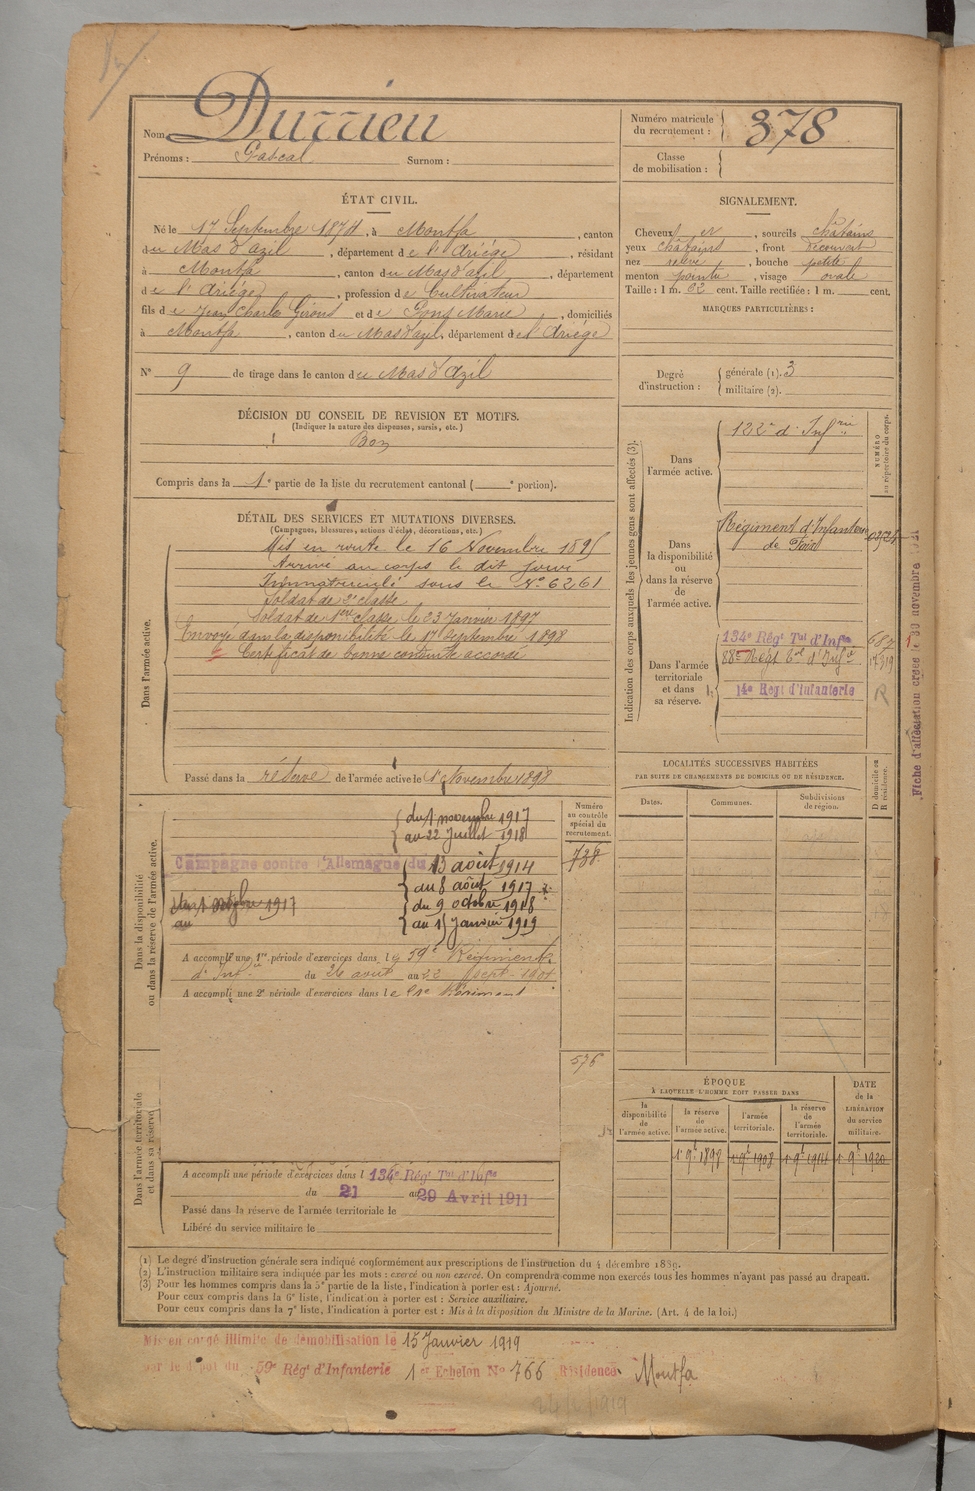 Nom Durrieu
Prénoms : Pascal Surnom :
Numéro matricule du recrutement : 378
Classe de mobilisation :
ÉTAT CIVIL.
Né le 17 Septembre 1874, à Montfa, canton
du Mas d'Azil, département de l'Ariége, résidant
à Montfa, canton du Mas d'azil, département
de l'Ariége, profession de Cultivateur
fils de Jean Charles Girons et de Pons Marie, domiciliés
à Montfa, canton du Mas d'azil, département de l'Ariége
N° 9 de tirage dans le canton du Mas d'Azil
SIGNALEMENT.
Cheveux et, sourcils châtains
yeux châtains, front découvert
nez relevé, bouche petite
menton pointu, visage ovale
Taille : 1 m. 82 cent. Taille rectifiée : 1 m. cent.
MARQUES PARTICULIÈRES :
Degré d'instruction : générale (1). 3
militaire (2).
DÉCISION DU CONSEIL DE REVISION ET MOTIFS.
(Indiquer la nature des dispenses, sursis, etc.)
Bon
Compris dans la 1e partie de la liste du recrutement cantonal ( e portion).
DÉTAIL DES SERVICES ET MUTATIONS DIVERSES.
(Campagnes, blessures, actions d'éclat, décorations, etc.)
Dans l'armée active.
Mis en route le 16 Novembre 1895
Arrivé au corps le dit jour
Immatriculé sous le N° 6261
Soldat de 2e classe
Soldat de 1ere classe le 23 Janvier 1897
Envoyé dans la disponibilité le 17 Septembre 1898
Certificat de bonne conduite accordé
Passé dans la réserve de l'armée active le 1er Novembre 1898
Indication des corps auxquels les jeunes gens sont affectés (3).
NUMÉRO au répertoire du corps.
Dans l'armée active.
122e d'Infrie
Dans la disponibilité ou dans la réserve de l'armée active.
Régiment d'Infanterie
de Foix
Dans l'armée territoriale et dans sa réserve.
134e Régt Tal d'Infie 687
88e Régt Tal d'Infie
14e Régt d'Infanterie R
Fiche d'affectation créée le 30 novembre 1921
LOCALITÉS SUCCESSIVES HABITÉES
PAR SUITE DE CHANGEMENTS DE DOMICILE OU DE RÉSIDENCE.
Dates. Communes. Subdivisions de région. D domicile ou R résidence.
Dans la disponibilité ou dans la réserve de l'armée active.
Numéro au contrôle spécial du recrutement.
738
576
du 1 novembre 1917
au 22 Juillet 1918
Campagne contre l'Allemagne du 13 août 1914
au 8 août 1917
du 9 octobre 1918
au 15 Janvier 1919
A accompli une 1re période d'exercices dans le 59e Régiment
d'Infie du 26 août au 22 sept. 1901
A accompli une 2e période d'exercices dans le Régiment
Dans l'armée territoriale et dans sa réserve
A accompli une période d'exercices dans l 134e Régt Tal d'Infie
du 21 au 29 Avril 1911
Passé dans la réserve de l'armée territoriale le
Libéré du service militaire le
ÉPOQUE
À LAQUELLE L'HOMME DOIT PASSER DANS
la disponibilité de l'armée active. la réserve de l'armée active. l'armée territoriale. la réserve de l'armée territoriale.
DATE de la LIBÉRATION du service militaire.
1er 9bre 1898 1er 9bre 1908 1er 9bre 1914 1er 9bre 1920
(1) Le degré d'instruction générale sera indiqué conformément aux prescriptions de l'instruction du 4 décembre 1889.
(2) L'instruction militaire sera indiquée par les mots : exercé ou non exercé. On comprendra comme non exercés tous les hommes n'ayant pas passé au drapeau.
(3) Pour les hommes compris dans la 5e partie de la liste, l'indication à porter est : Ajourné.
Pour ceux compris dans la 6e liste, l'indication à porter est : Service auxiliaire.
Pour ceux compris dans la 7e liste, l'indication à porter est : Mis à la disposition du Ministre de la Marine. (Art. 4 de la loi.)
Mis en congé illimité de démobilisation le 15 Janvier 1919
par le dépôt du 59e Régt d'Infanterie 1er Echelon N° 766 Résidence Montfa